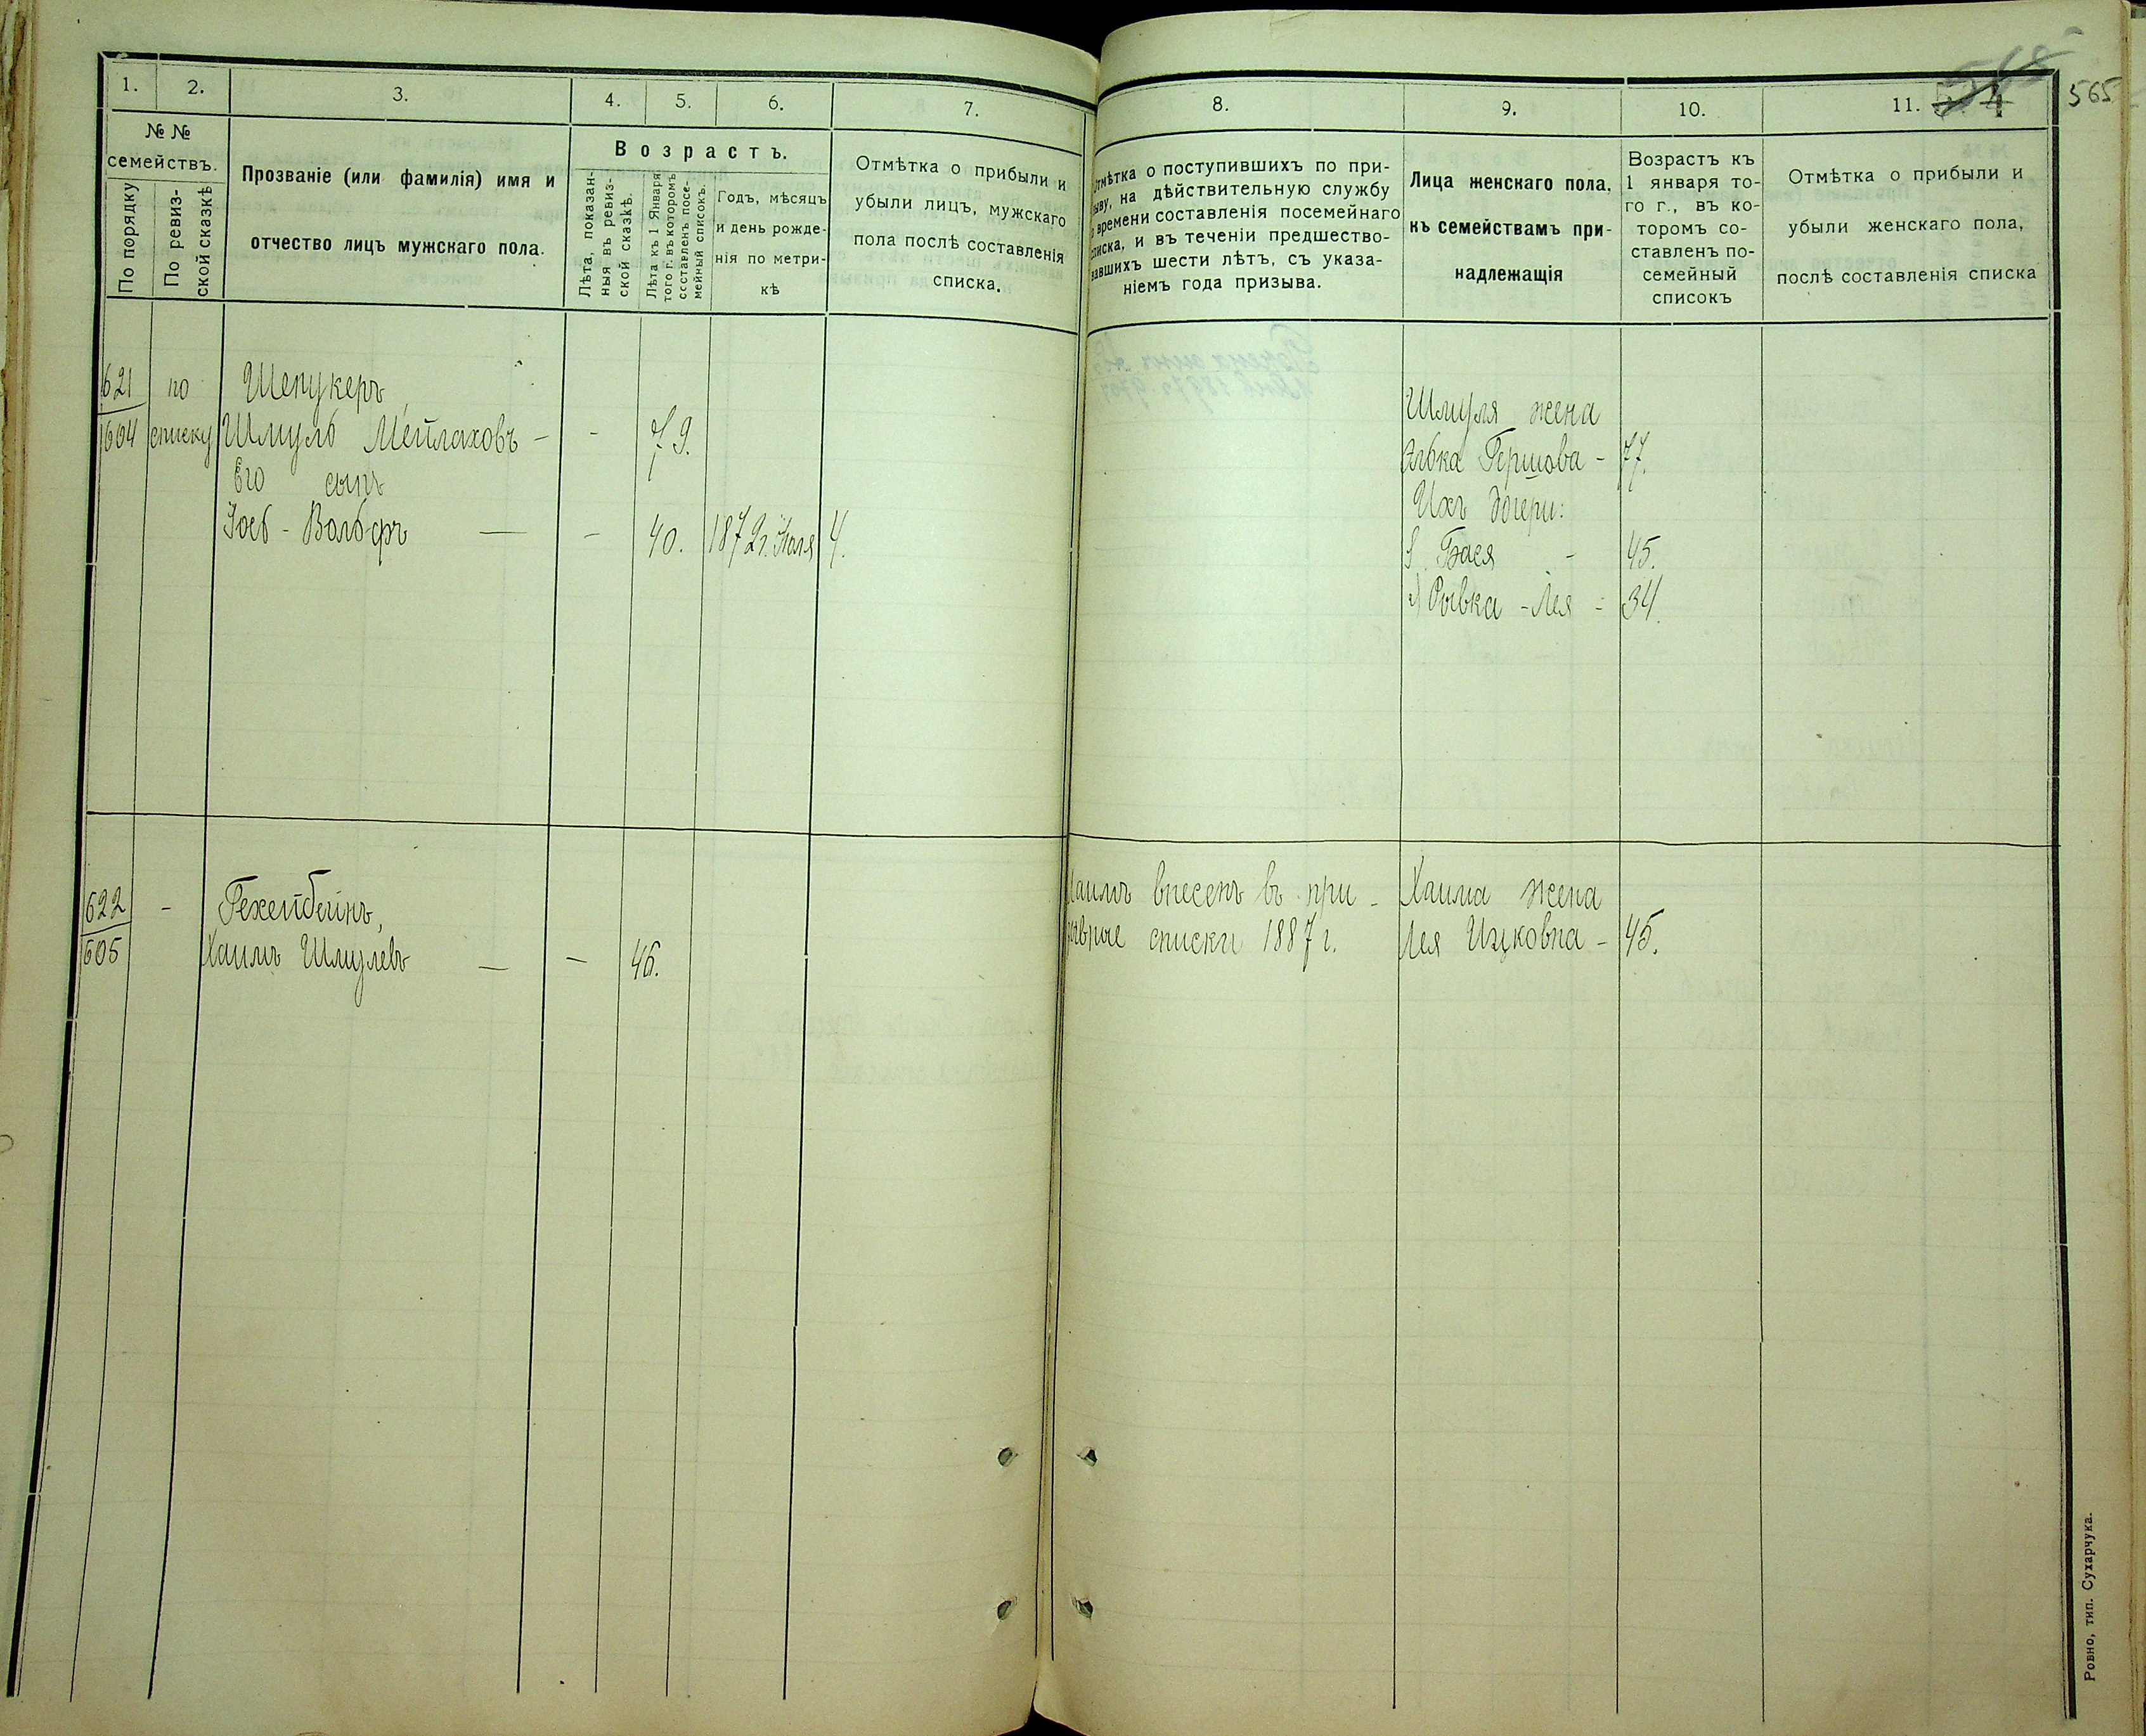 565
1. 2. 3. 4. 5. 6. 7.
№ №
семействъ.
По порядку
По ревиз-
ской сказкѣ
Прозваніе (или фамилія) имя и
отчество лицъ мужскаго пола.
Возрастъ.
Лѣта, показан-
ныя въ ревиз-
ской сказкѣ.
Лѣта къ 1 Января
того г. въ которомъ
составленъ посе-
мейный списокъ.
Годъ, мѣсяцъ
и день рожде-
нія по метри-
кѣ
Отмѣтка о прибыли и
убыли лицъ, мужскаго
пола послѣ составленія
списка.
621 по Шепукеръ,
604 списку Шмуль Мейлаховъ - - 79.
Его сынъ
Іось - Вольфъ — - 40. 1872 г. Іюля 4.
622 - Гехейбейнъ,
605 Хаимъ Шмулевъ — — 46.
8. 9. 10. 11.
Отмѣтка о поступившихъ по при-
зыву, на дѣйствительную службу
времени составленія посемейнаго
списка, и въ теченіи предшество-
вавшихъ шести лѣтъ, съ указа-
ніемъ года призыва.
Лица женскаго пола,
къ семействамъ при-
надлежащія
Возрастъ къ
1 января то-
го г., въ ко-
торомъ со-
ставленъ по-
семейный
списокъ
Отмѣтка о прибыли и
убыли женскаго пола,
послѣ составленія списка
Шмуля жена
Гершова - 77.
Ихъ дочери:
Бася - 45.
Рывка - Лея - 34.
Хаимъ внесенъ въ при-
зывные списки 1887 г.
Хаима жена
Лея Ицковна - 45.
Ровно, тип. Сухарчука.